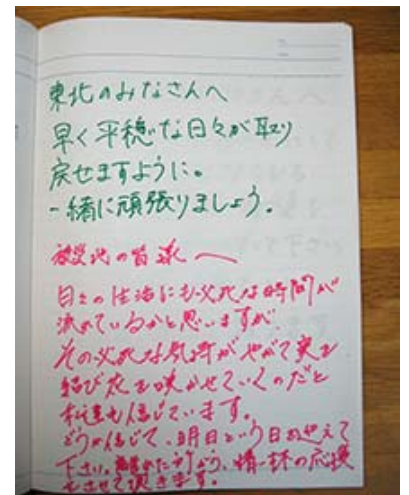 東北のみなさんへ
早く平穏な日々が取り
戻せますように。
一緒に頑張りましょう。
被災地の皆様へ
日々の生活にも必死な時間が
流れているかと思いますが
その必死な気持がやがて実を
結び花を咲かせていくのだと
私達も信じています。
どうか信じて、明日という日を迎えて
下さい。精一杯の応援
をさせて頂きます。